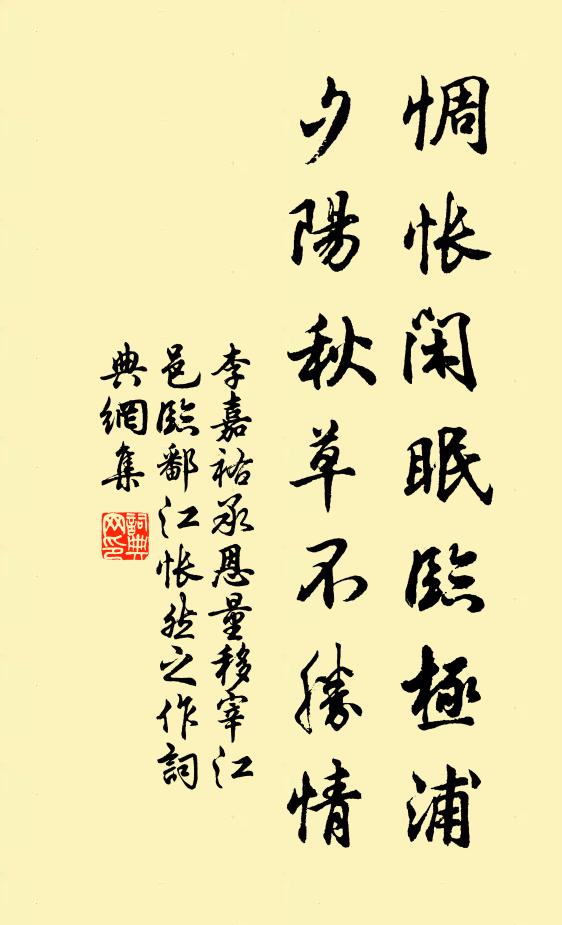 惆怅闲眠臨極浦
夕陽秋草不勝情
李嘉祐承恩量移宰江
邑臨鄱江怅然之作詞
典網集
詞典網印